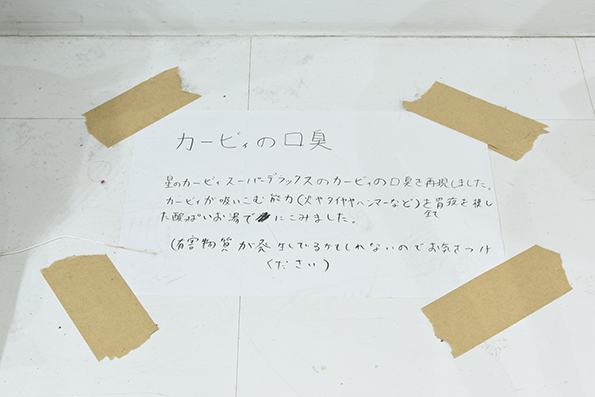 カービィの口臭
星のカービィスーパーデラックスのカービィの口臭を再現しました。
カービィが吸いこむ能力(火やタイヤやハンマーなど)を胃液を模し
た酸っぱいお湯でにこみました。
(有害物質が発生しているかもしれないのでお気をつけ
ください)